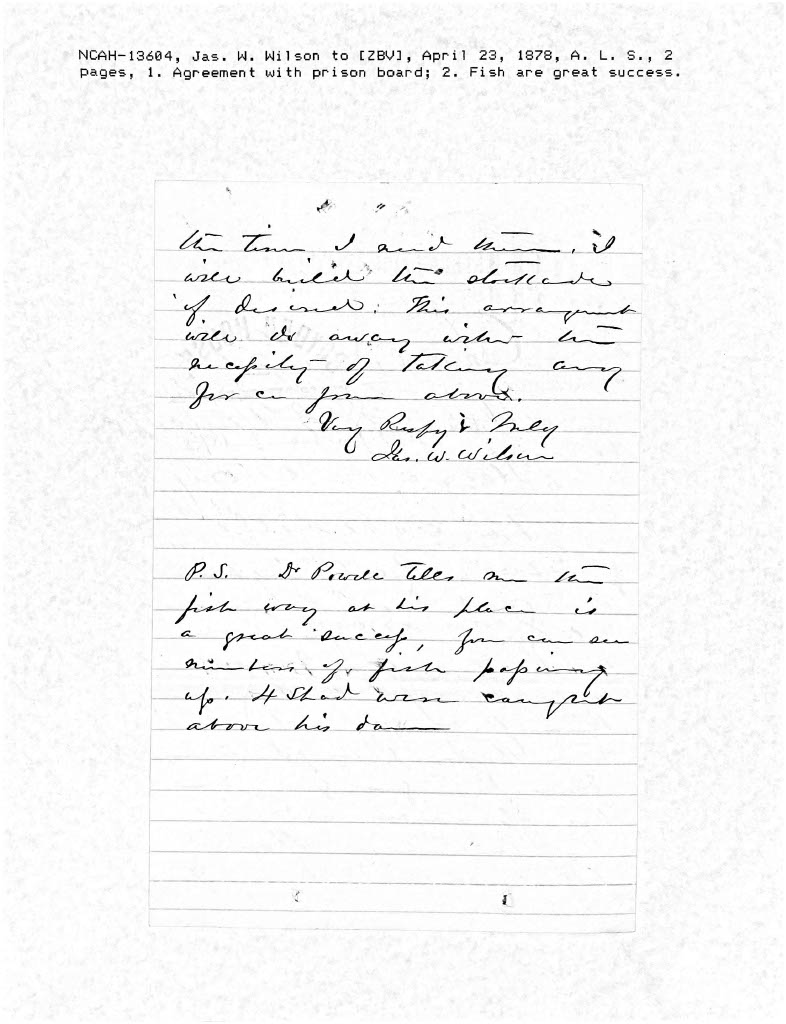 NCAH-13604, Jas. W. Wilson to [ZBV], April 23, 1878, A. L. S., 2
pages, 1. Agreement with prison board; 2. Fish are great success.
"
the time I need them. I
will build the stockade
if desired. This arrangement
will do away with the
necessity of taking any
force from above.
Very Respy & Truly
Jas. W. Wilson
P.S. Dr Powell tells me the
fish way at his place is
a great success, you can see
numbers of fish passing
up. 4 Shad were caught
above his dam